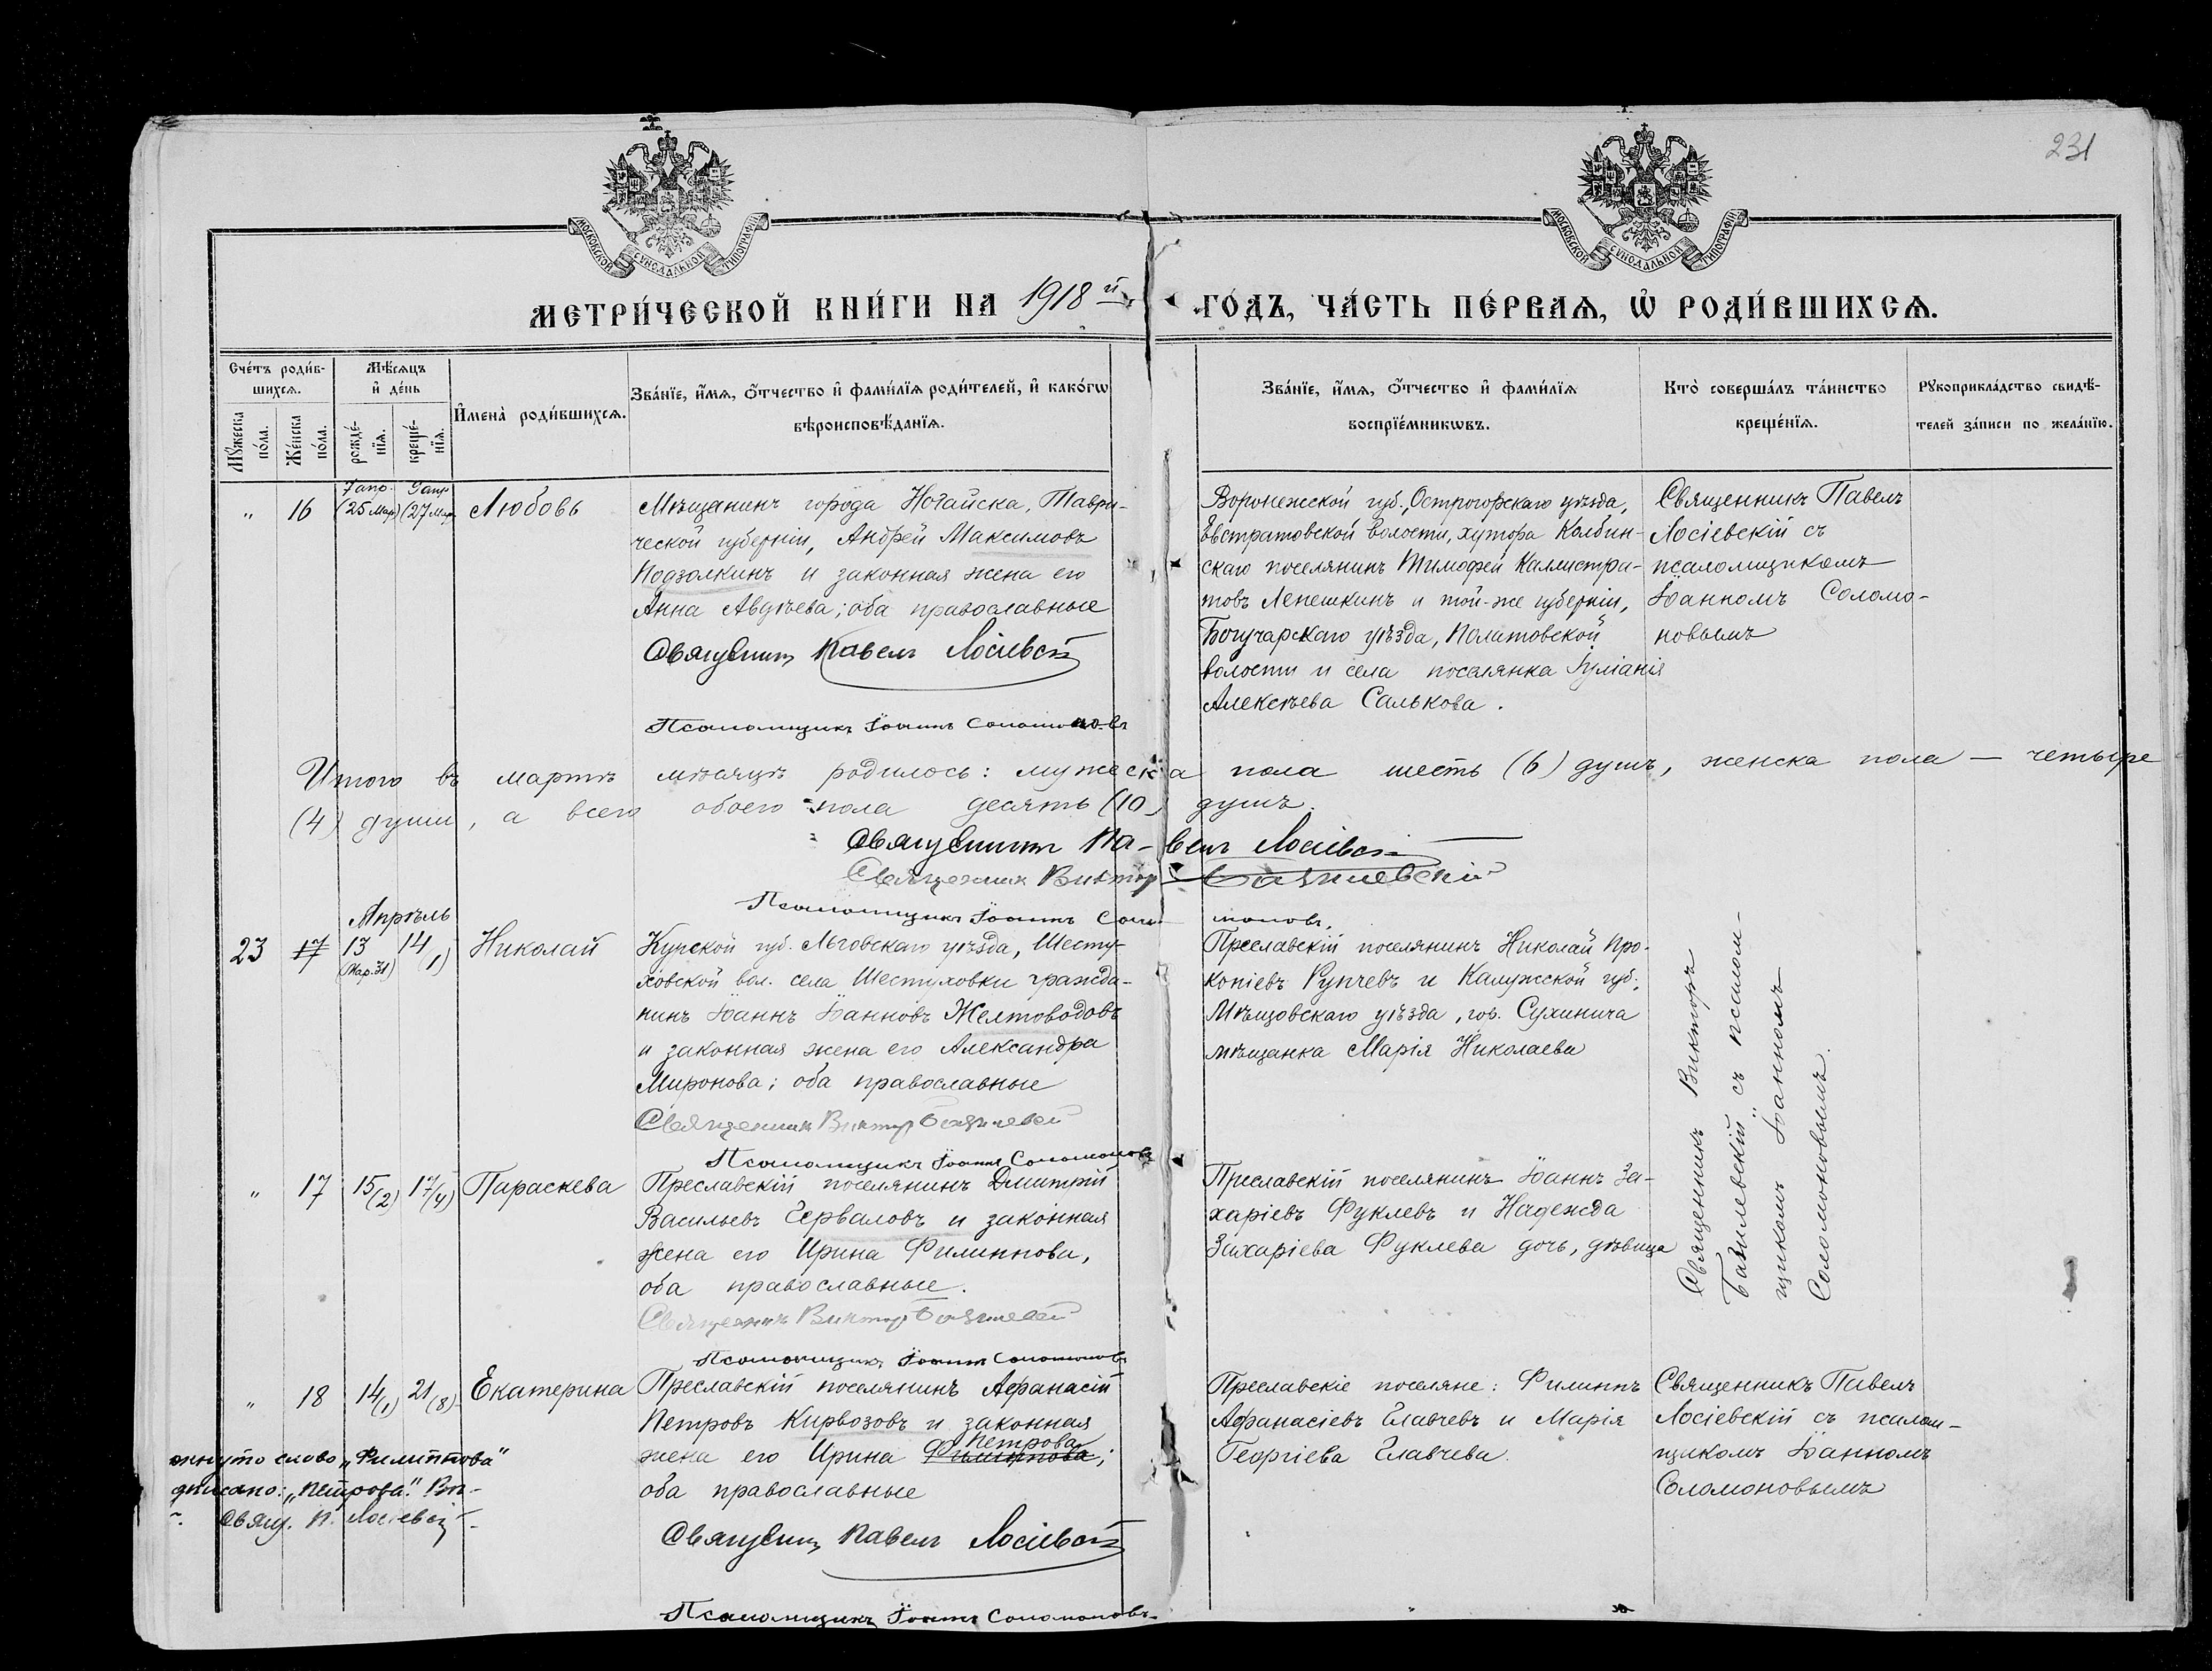 231
МОСКОВСКОЙ СѴНОДАЛЬНОЙ ТИПОГРАФІИ
МОСКОВСКОЙ СѴНОДАЛЬНОЙ ТИПОГРАФІИ
МЕТРИ́ЧЕСКОЙ КНИ́ГИ НА 1918й ГО́ДЪ, ЧА́СТЬ ПЕ́РВАѦ, Ѡ҆ РОДИ́ВШИХСѦ.
Счéтъ роди́в-
шихсѧ.
Мꙋ́жеска
по́ла.
Жéнска
по́ла.
Мѣ́сѧцъ
и҆ дéнь
рождé-
нїѧ.
крещé-
нїѧ.
И҆мена̀ роди́вшихсѧ.
Зва́нїе, и҆́мѧ, ѻ҆́тчество и҆ фами́лїѧ роди́телей, и҆ како́гѡ
вѣроисповѣ́данїѧ.
Зва́нїе, и҆́мѧ, ѻ҆́тчество и҆ фами́лїѧ
воспрїéмникѡвъ.
Кто̀ соверша́лъ та́инство
крещéнїѧ.
Рꙋкоприкла́дство свидѣ́-
телей за́писи по жела́нїю.
" 16
7 апр. 9 апр
(25 Мар.) (27 Мар.
Любовь
Мѣщанинъ города Ногайска, Таври-
ческой губерніи, Андрей Максимовъ
Подзолкинъ и законная жена его
Анна Авдѣева; оба православные
Священникъ Павелъ Лосіевскій
Псаломщикъ Іоаннъ Соломоновъ
Воронежской губ., Острогорскаго уѣзда,
Евстратовской волости, хутора Колбин-
скаго поселянинъ Тимофей Каллистра-
товъ Лепешкинъ и той-же губерніи,
Богучарскаго уѣзда, Политовской
волости и села поселянка Іуліанія
Алексѣева Салькова.
Священникъ Павелъ
Лосіевскій съ
псаломщикомъ
Іоанномъ Соломо-
новымъ
Итого въ мартѣ мѣсяцѣ родилось: мужеска пола шесть (6) душъ, женска пола — четыре
(4) души, а всего обоего пола десять (10) душъ.
Священникъ Павелъ Лосіевскій
Священникъ Викторъ Базилевскій
Псаломщикъ Іоаннъ Соломоновъ.
Апрѣль
23 17 13 14
(Мар. 31) (1)
Николай
Курской губ. Льговскаго уѣзда, Шесту-
ховской вол. села Шестуховки гражда-
нинъ Іоаннъ Іоанновъ Желтоводовъ
и законная жена его Александра
Миронова; оба православные
Священникъ Викторъ Базилевскій
Псаломщикъ Іоаннъ Соломоновъ
Преславскій поселянинъ Николай Про-
копіевъ Рупчевъ и Калужской губ.,
Мѣщовскаго уѣзда, гор. Сухинича
мѣщанка Марія Николаева
Священникъ Викторъ
Базилевскій съ псалом-
щикомъ Іоанномъ
Соломоновымъ.
" 17 15/(2) 17/(4) Параскева
Преславскій поселянинъ Дмитрій
Васильевъ Черваловъ и законная
жена его Ирина Филиппова,
оба православные.
Священникъ Викторъ Базилевскій
Псаломщикъ Іоаннъ Соломоновъ
Преславскій поселянинъ Іоаннъ За-
харіевъ Фуклевъ и Надежда
Захаріева Фуклева дочь, дѣвица
" 18 14/(1) 21/(8) Екатерина
Преславскій поселянинъ Афанасій
Петровъ Кирвозовъ и законная
Петрова
жена его Ирина Филиппова;
оба православные
Священникъ Павелъ Лосіевскій
Псаломщикъ Іоаннъ Соломоновъ
Преславскіе поселяне: Филиппъ
Афанасіевъ Главчевъ и Марія
Георгіева Главчева.
Священникъ Павелъ
Лосіевскій съ псалом-
щикомъ Іоанномъ
Соломоновымъ
кнуто слово „Филиппова"
писано: „Петрова".
Свящ. П. Лосіевскій